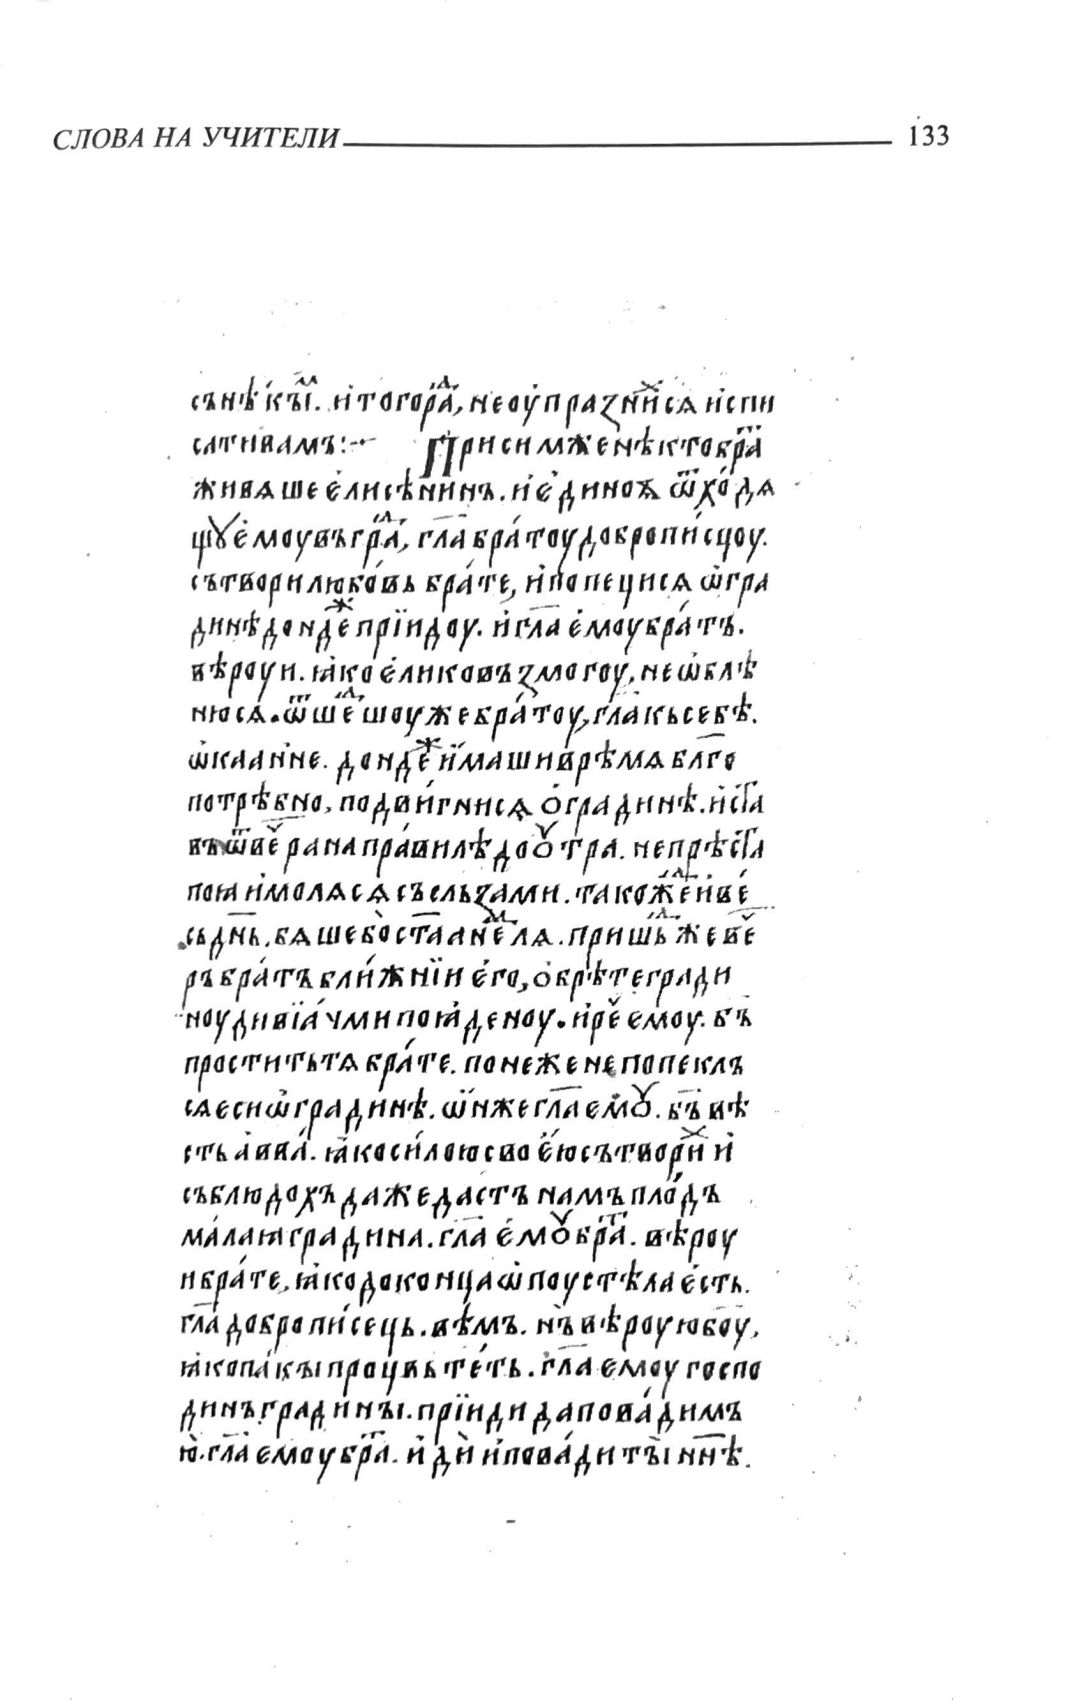 СЛОВА НА УЧИТЕЛИ 133
сънѣкꙑⷨ. и҆тогора́ⷣ, неоу҆празнⷯи́сѧ и҆спи
сативамъ:~ Присимжененѣктобраⷮ
живѧшее҆лисѣнинъ. и҆е҆диноѫ ѿхо́дѧ
щꙋе҆моувъгра́ⷣ, гл҃абра́тоудобропи́сцоу.
сътворилюбо́вь бра́те, и҆попецисѧ ѡ҆гра
динѣдондеⷤпрїидоу. и҆гл҃а е҆моубра́тъ.
вѣроуи. ꙗ҆коели́ковъзмогоу, неѡ҆блѣ
нюсѧ. ѿшеⷣшоужебра́тоу, гл҃акъсебѣ.
ѡ҆каан́не. дондеⷤи҆машиврѣмѧ бл҃го
потрѣбно, подви́гнисѧ о҆градинѣ. и҆стⷭ҇а
въѿвеⷱ҇рана пра́вилѣдоꙋтра. непрѣстⷭ҇а
поꙗ и҆молѧсѧ съсльзами. такоⷤдеи҆ве́
сьдн҃ь. бѧшебо̀ст҃аанеⷣлѧ. пришьⷣжевеⷱ҇
ръбра́тъбли́жнїи е҆го, о҆брѣтегради
ноудивїа́чмипоꙗ҆деноу. и҆реⷱ҇ емоу. б҃ъ
проститьтѧ бра́те. понежене попеклъ
сѧесиѡ҆гра́динѣ. ѡ҆́нжегл҃аемꙋ. б҃ъвѣ
сть а҆вва́. ꙗ҆коси́лоюсвоею сътвориⷯ и҆
съблюдохъдажедастъ намъпло́дъ
ма́лаꙗградина. гл҃а е҆мꙋбраⷮ. вѣроу
и бра́те, ꙗ҆кодоконцаѡ҆поустѣлаесть.
гл҃а добропи́сець. вѣмъ. нъвѣроуюбо҃у,
ꙗ҆копа́кыпроцвьте́ть. гл҃а емоу госпо
динъгради́ны. прїиди даповⷣа́димъ
ю҆. гл҃а емоубраⷮ. и҆ди̇̀ и҆пова́дитъı нн҃ѣ.